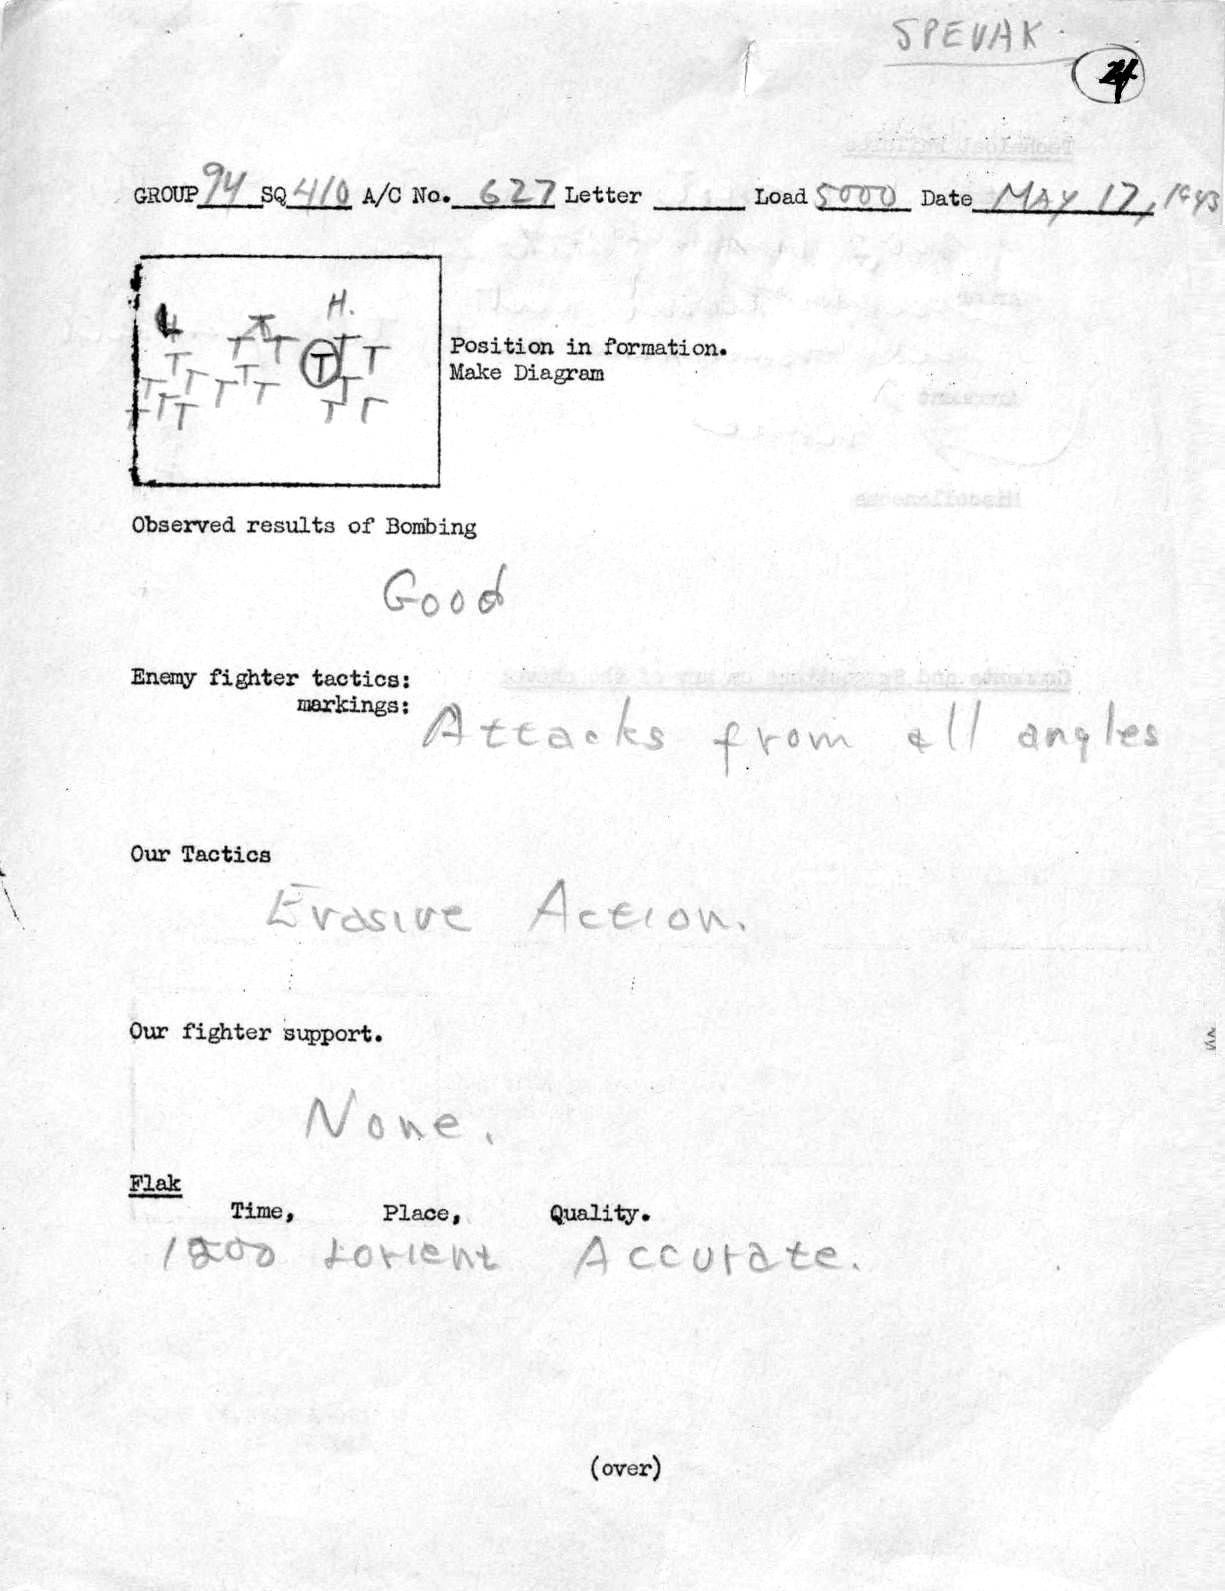 SPEVAK
24
GROUP 94 SQ 410 A/C No. 627 Letter ______ Load 5000 Date MAY 17, 1943
H.
L
T T T T T
T T T
T T T T
T T T T T
Position in formation.
Make Diagram
Observed results of Bombing
Good
Enemy fighter tactics:
markings:
Attacks from all angles
Our Tactics
Evasive Action.
Our fighter support.
None.
Flak
Time, Place, Quality.
1200 Lorient Accurate.
(over)